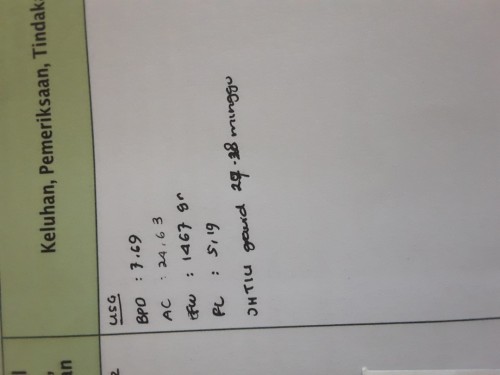 l
,
an
Keluhan, Pemeriksaan, Tindaka
2
USG
BPD : 7,69
AC : 24,63
EFW : 1467 gr
FL : 5,19
JHTIU gravid 29-38 minggu